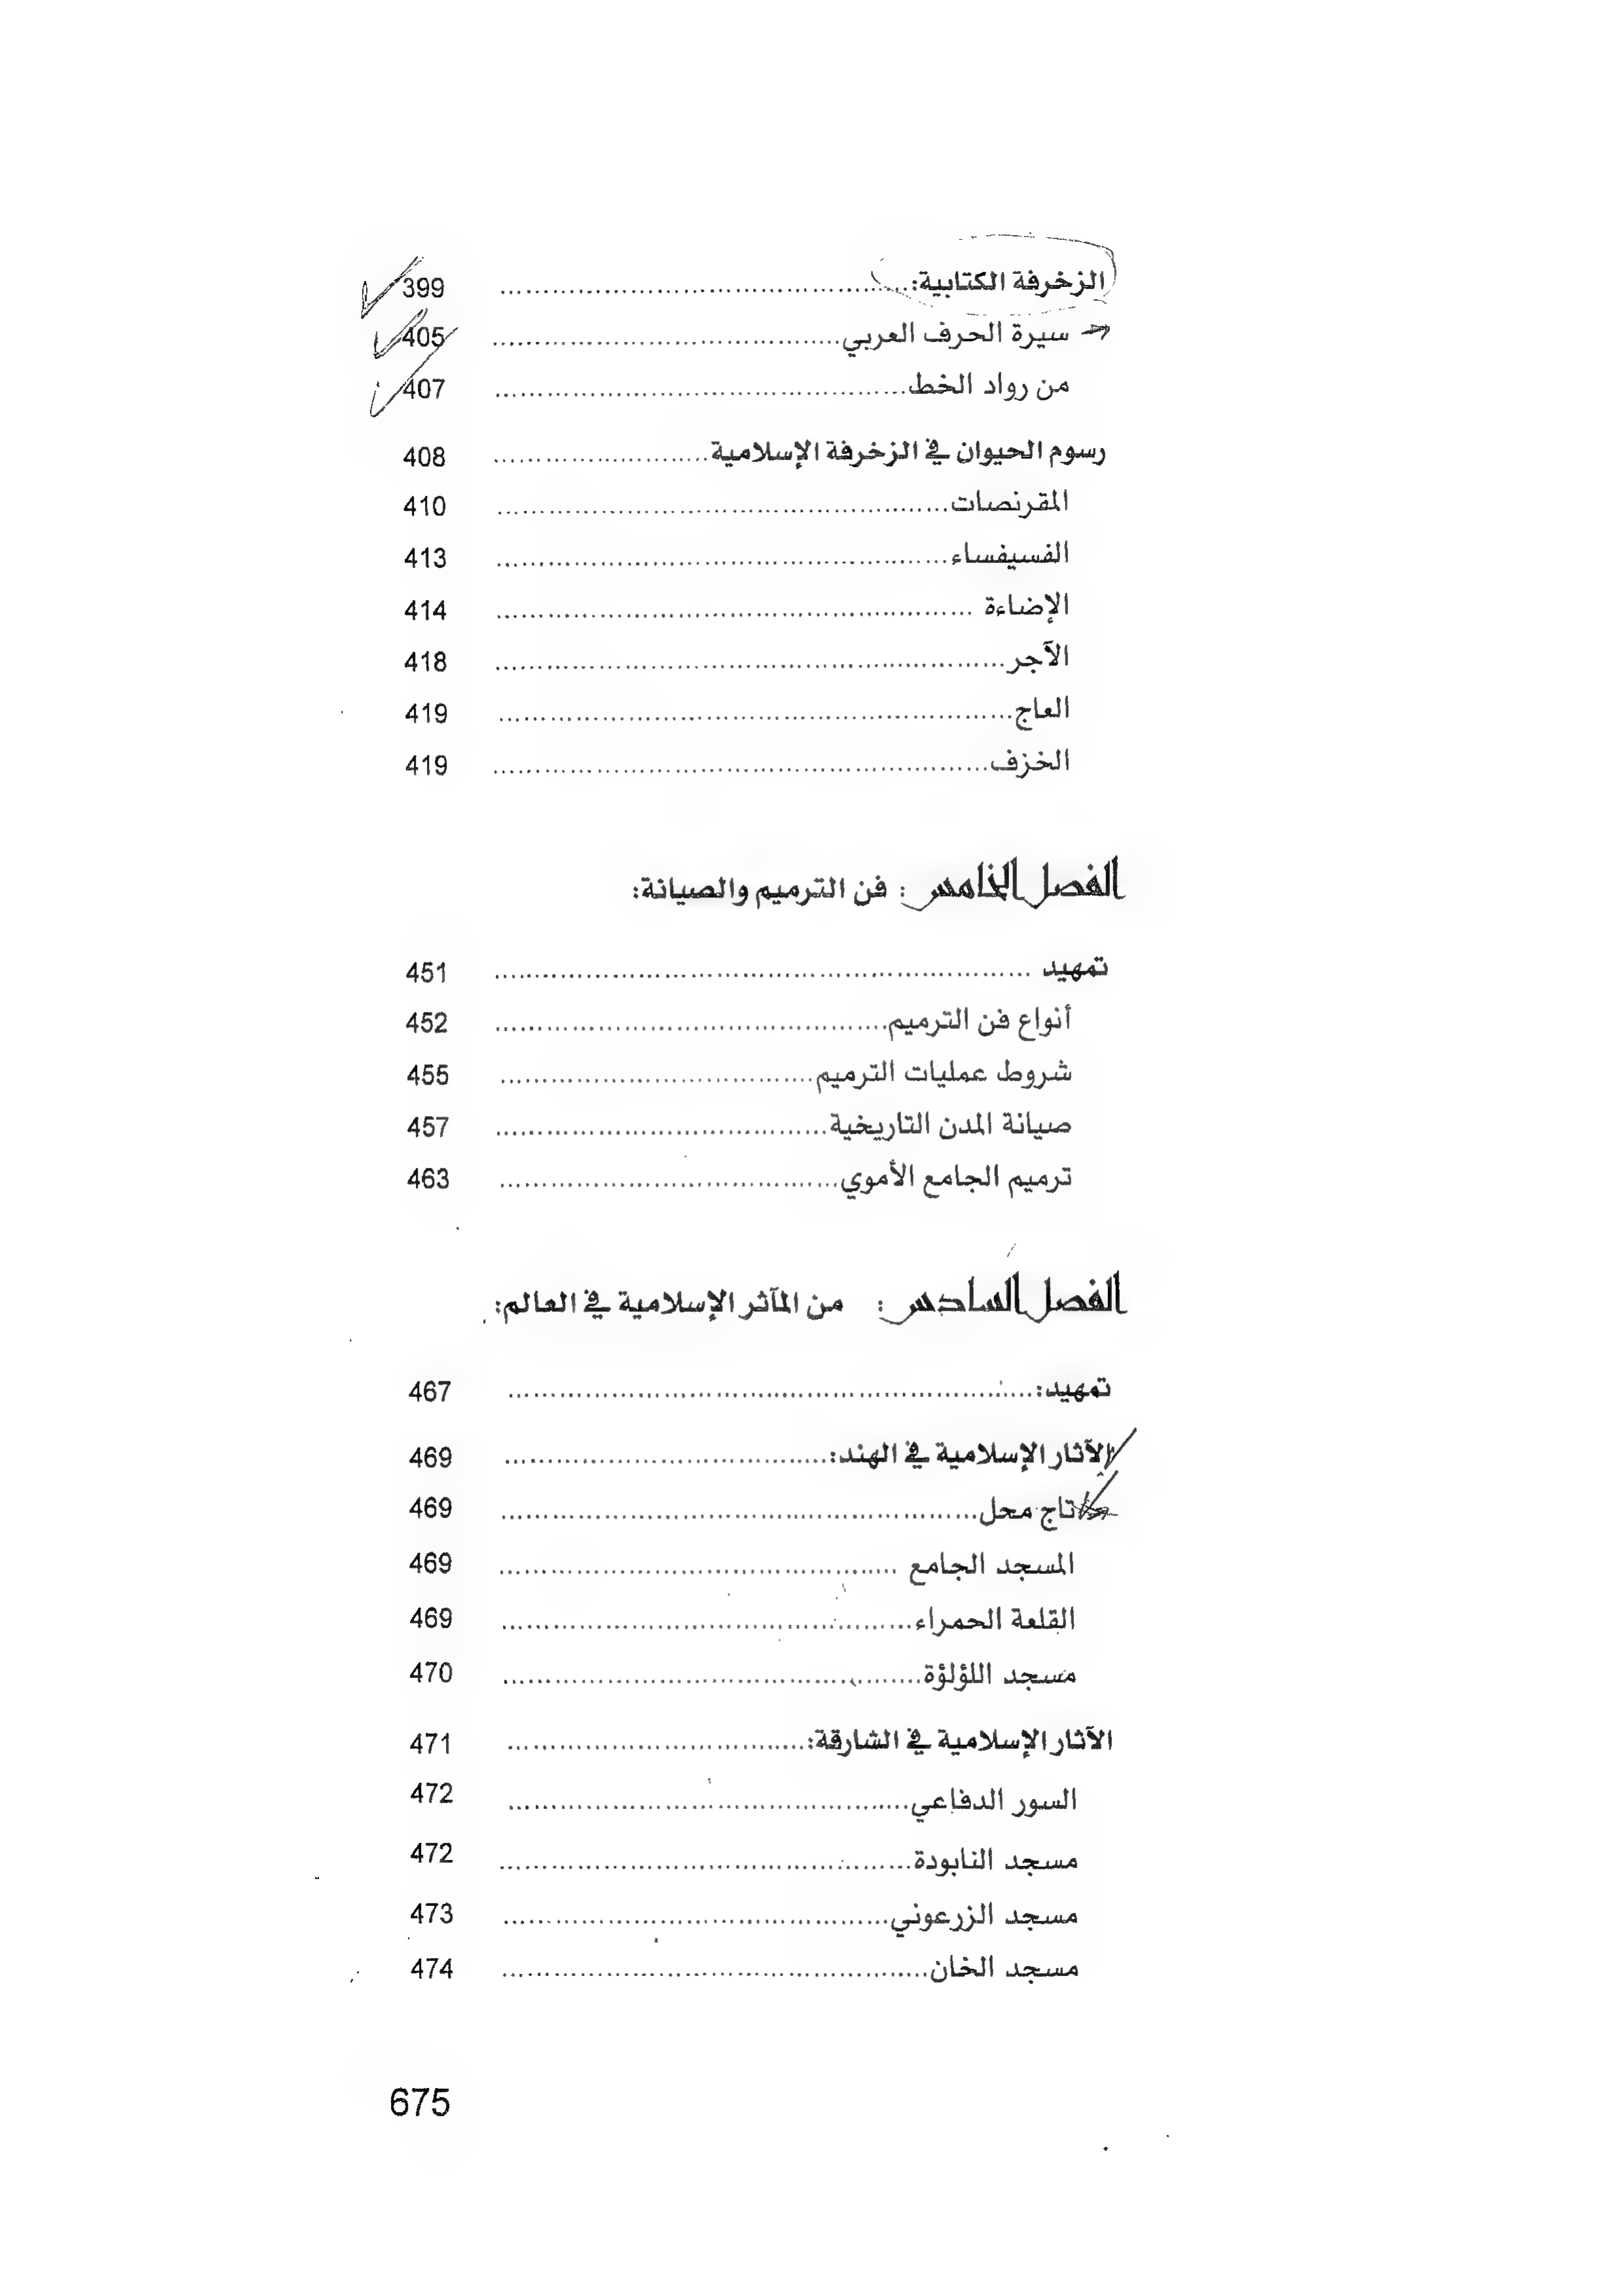 الزخرفة الكتابية: ........ 399
سيرة الحرف العربي ........ 405
من رواد الخط ........ 407
رسوم الحيوان في الزخرفة الإسلامية ........ 408
المقرنصات ........ 410
الفسيفساء ........ 413
الإضاءة ........ 414
الآجر ........ 418
العاج ........ 419
الخزف ........ 419
الفصل الخامس : فن الترميم والصيانة:
تمهيد ........ 451
أنواع فن الترميم ........ 452
شروط عمليات الترميم ........ 455
صيانة المدن التاريخية ........ 457
ترميم الجامع الأموي ........ 463
الفصل السادس : من المآثر الإسلامية في العالم:
تمهيد: ........ 467
الآثار الإسلامية في الهند: ........ 469
تاج محل ........ 469
المسجد الجامع ........ 469
القلعة الحمراء ........ 469
مسجد اللؤلؤة ........ 470
الآثار الإسلامية في الشارقة: ........ 471
السور الدفاعي ........ 472
مسجد النابودة ........ 472
مسجد الزرعوني ........ 473
مسجد الخان ........ 474
675